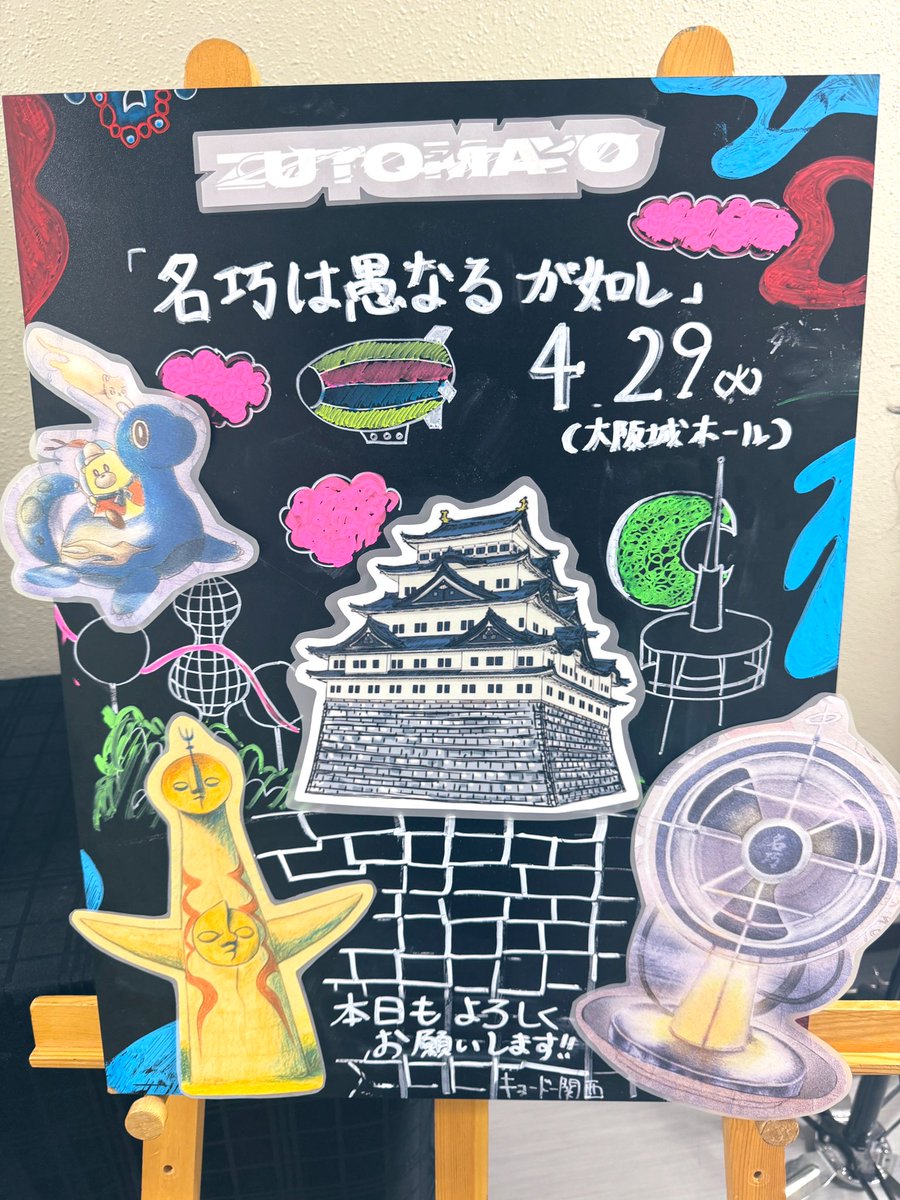 ZUTOMAYO
「名巧は愚なるが如し」
4.29㊋
(大阪城ホール)
名巧
本日もよろしく
お願いします!!
キョードー関西